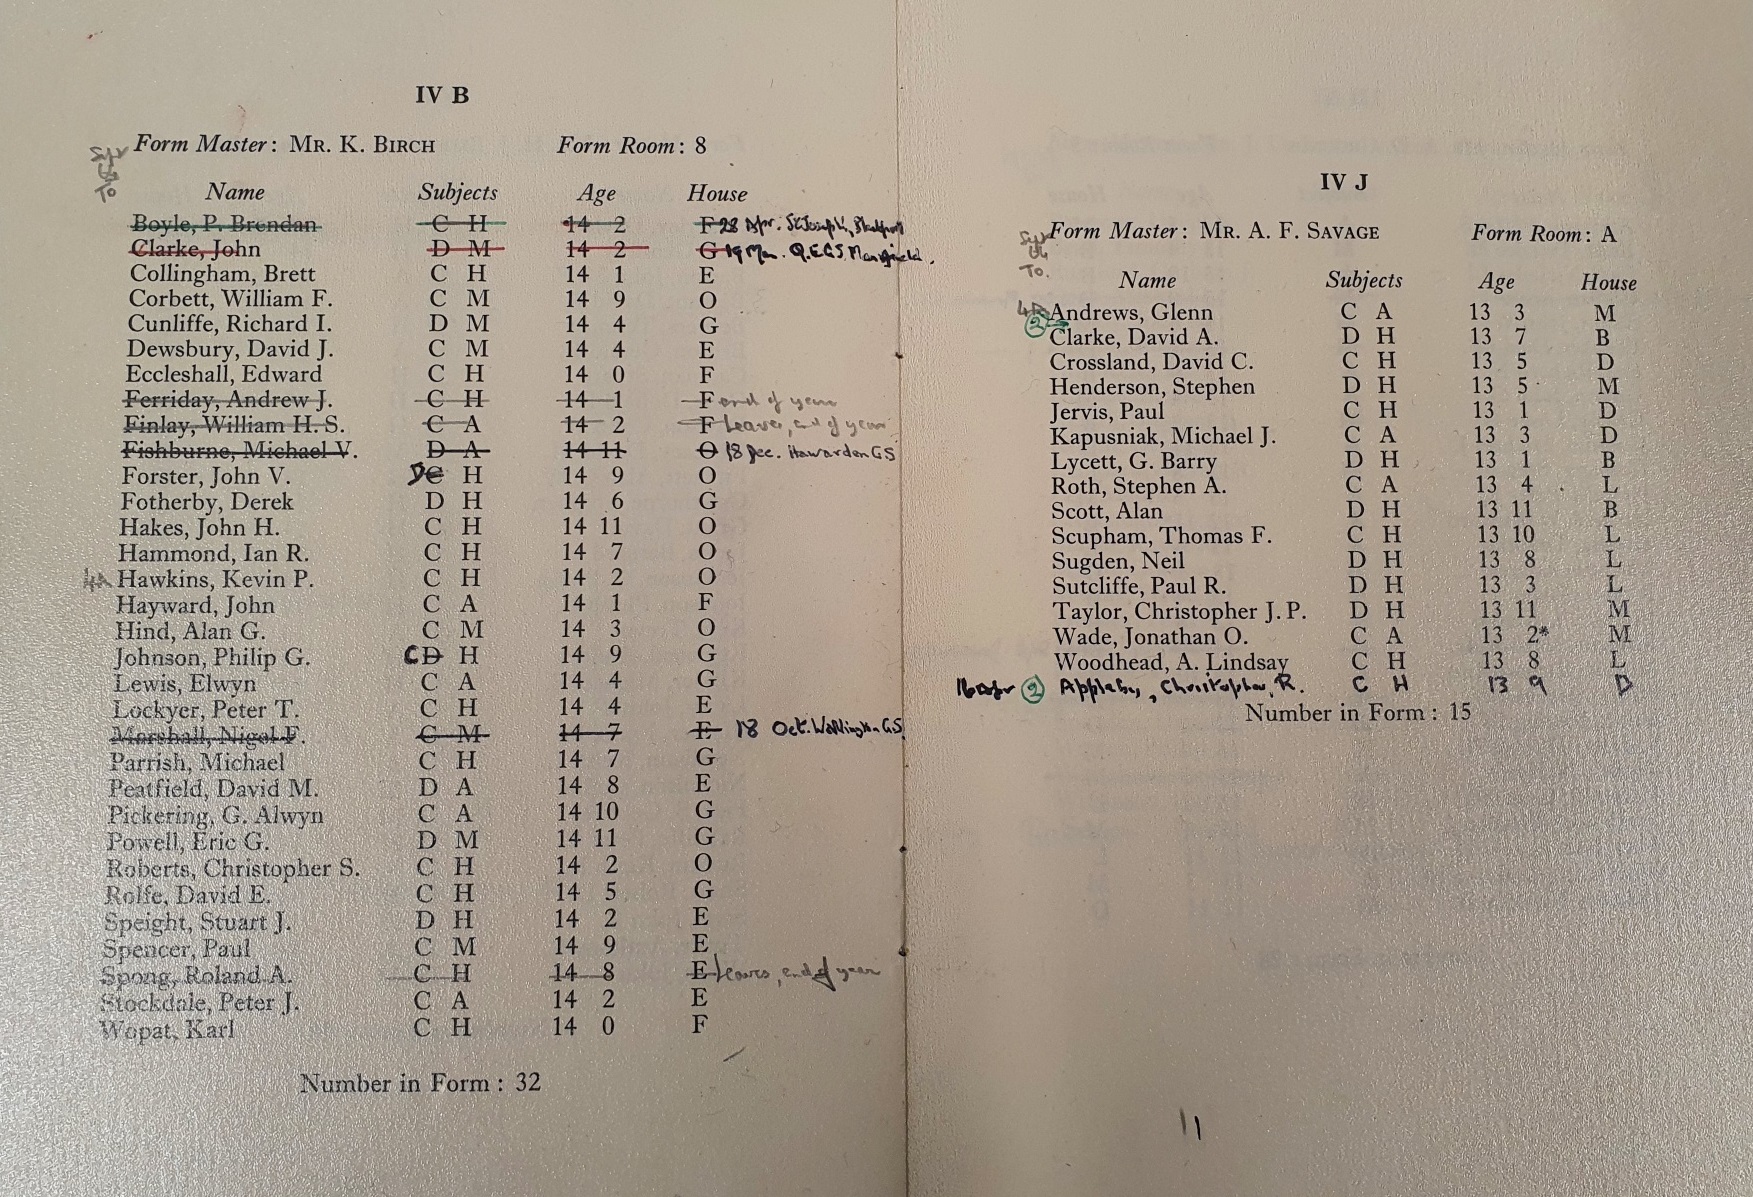 IV B
Form Master: Mr. K. Birch Form Room: 8
Name Subjects Age House
Boyle, P. Brendan C H 14 2 F 28 Apr. St Joseph's,
Clarke, John D M 14 2 G 19 Mar. Q.E.G.S. Mansfield.
Collingham, Brett C H 14 1 E
Corbett, William F. C M 14 9 O
Cunliffe, Richard I. D M 14 4 G
Dewsbury, David J. C M 14 4 E
Eccleshall, Edward C H 14 0 F
Ferriday, Andrew J. C H 14 1 F end of year
Finlay, William H. S. C A 14 2 F Leaves, end of year
Fishburne, Michael V. D A 14 11 O 18 Dec. Hawarden GS
Forster, John V. D C H 14 9 O
Fotherby, Derek D H 14 6 G
Hakes, John H. C H 14 11 O
Hammond, Ian R. C H 14 7 O
4A Hawkins, Kevin P. C H 14 2 O
Hayward, John C A 14 1 F
Hind, Alan G. C M 14 3 O
Johnson, Philip G. C D H 14 9 G
Lewis, Elwyn C A 14 4 G
Lockyer, Peter T. C H 14 4 E
Marshall, Nigel F. C M 14 7 E 18 Oct. Wallington G.S.
Parrish, Michael C H 14 7 G
Peatfield, David M. D A 14 8 E
Pickering, G. Alwyn C A 14 10 G
Powell, Eric G. D M 14 11 G
Roberts, Christopher S. C H 14 2 O
Rolfe, David E. C H 14 5 G
Speight, Stuart J. D H 14 2 E
Spencer, Paul C M 14 9 E
Spong, Roland A. C H 14 8 E Leaves, end of year
Stockdale, Peter J. C A 14 2 E
Wopat, Karl C H 14 0 F
Number in Form: 32
IV J
Form Master: Mr. A. F. Savage Form Room: A
To.
Name Subjects Age House
Andrews, Glenn C A 13 3 M
2 Clarke, David A. D H 13 7 B
Crossland, David C. C H 13 5 D
Henderson, Stephen D H 13 5 M
Jervis, Paul C H 13 1 D
Kapusniak, Michael J. C A 13 3 D
Lycett, G. Barry D H 13 1 B
Roth, Stephen A. C A 13 4 L
Scott, Alan D H 13 11 B
Scupham, Thomas F. C H 13 10 L
Sugden, Neil D H 13 8 L
Sutcliffe, Paul R. D H 13 3 L
Taylor, Christopher J. P. D H 13 11 M
Wade, Jonathan O. C A 13 2* M
Woodhead, A. Lindsay C H 13 8 L
16 Apr 2 Appleby, Christopher, R. C H 13 9 D
Number in Form: 15
11